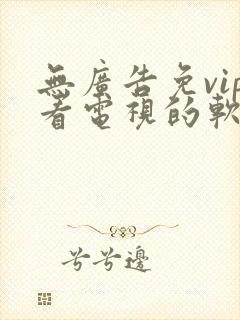 無廣告免vip
看電視的軟
兮兮邊